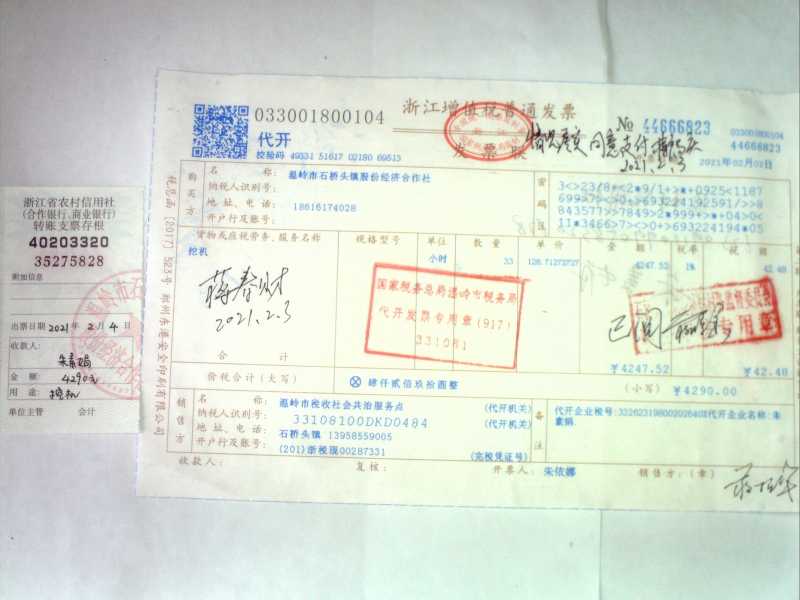 浙江省农村信用社
(合作银行、商业银行)
转账支票存根
40203320
35275828
附加信息
出票日期 2021年 2月 4日
收款人：
朱素娟
金额：
4290元
用途：挖机
单位主管 会计
033001800104
浙江增值税普通发票
№ 44666823
033001800104
44666823
代开
发票联
同意支付
2021.2.3
校验码 49331 51617 02180 69513
2021年02月02日
购买方
名称：温岭市石桥头镇股份经济合作社
纳税人识别号：
地址、电话：18616174028
开户行及账号：
密码区
3<>23/8+<2*9/1+>*+0925<1187
843577>7849>2*999+>*+04>0<
货物或应税劳务、服务名称 规格型号 单位 数量 单价 税率
挖机 小时 33 128.71272727 4247.52 1% 42.48
蒋春财
2021.2.3
国家税务总局温岭市税务局
代开发票专用章(917)
331081
已阅
专用章
合计 ¥4247.52 ¥42.48
价税合计(大写) ⊗肆仟贰佰玖拾圆整 (小写) ¥4290.00
销售方
名称：温岭市税收社会共治服务点 (代开机关)
纳税人识别号：33108100DKD0484 (代开机关)
地址、电话：石桥头镇 13958559005
开户行及账号：(201)浙税现00287331 (完税凭证号)
备注
代开企业税号：332623198002026408代开企业名称：朱素娟
收款人： 复核： 开票人：朱依娜 销售方：(章)
税总函〔2017〕523号 郑州东港安全印刷有限公司